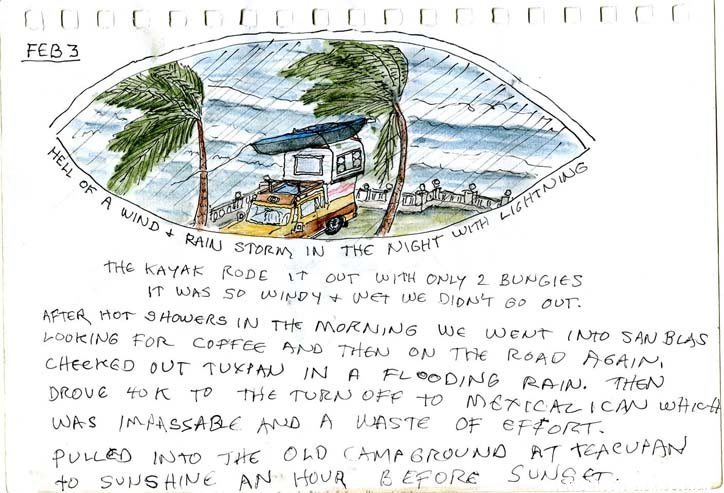 FEB 3
HELL OF A WIND + RAIN STORM IN THE NIGHT WITH LIGHTNING
THE KAYAK RODE IT OUT WITH ONLY 2 BUNGIES
IT WAS SO WINDY + WET WE DIDN'T GO OUT.
AFTER HOT SHOWERS IN THE MORNING WE WENT INTO SAN BLAS
LOOKING FOR COFFEE AND THEN ON THE ROAD AGAIN.
CHECKED OUT TUXPAN IN A FLOODING RAIN. THEN
DROVE 40K TO THE TURN OFF TO MEXICALICAN WHICH
WAS IMPASSABLE AND A WASTE OF EFFORT.
PULLED INTO THE OLD CAMPGROUND AT TEACUPAN
TO SUNSHINE AN HOUR BEFORE SUNSET.